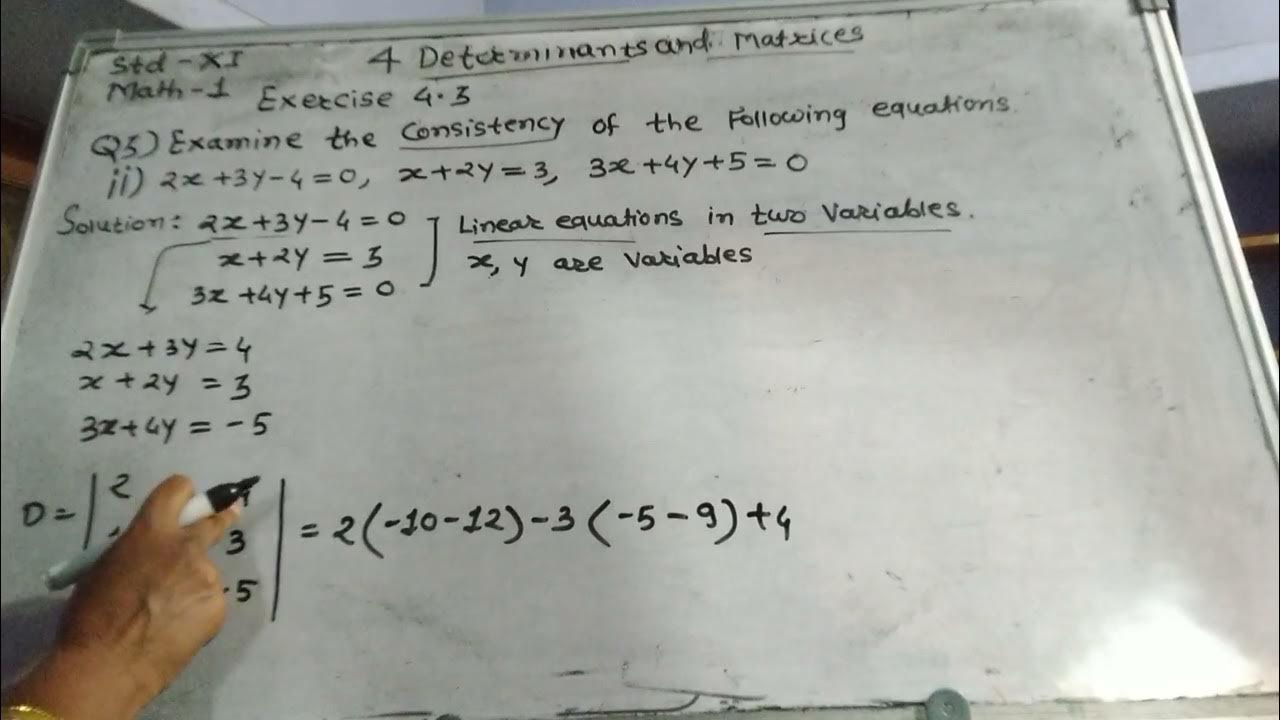 Std - XI 4 Determinants and Matrices
Math - 1 Exercise 4.3
Q5) Examine the Consistency of the Following equations.
ii) 2x + 3y - 4 = 0, x + 2y = 3, 3x + 4y + 5 = 0
Solution: 2x + 3y - 4 = 0 ] Linear equations in two Variables.
x + 2y = 3 x, y are Variables
3x + 4y + 5 = 0
2x + 3y = 4
x + 2y = 3
3x + 4y = -5
D = | 2 4 | = 2(-10-12) - 3(-5-9) + 4
3
-5